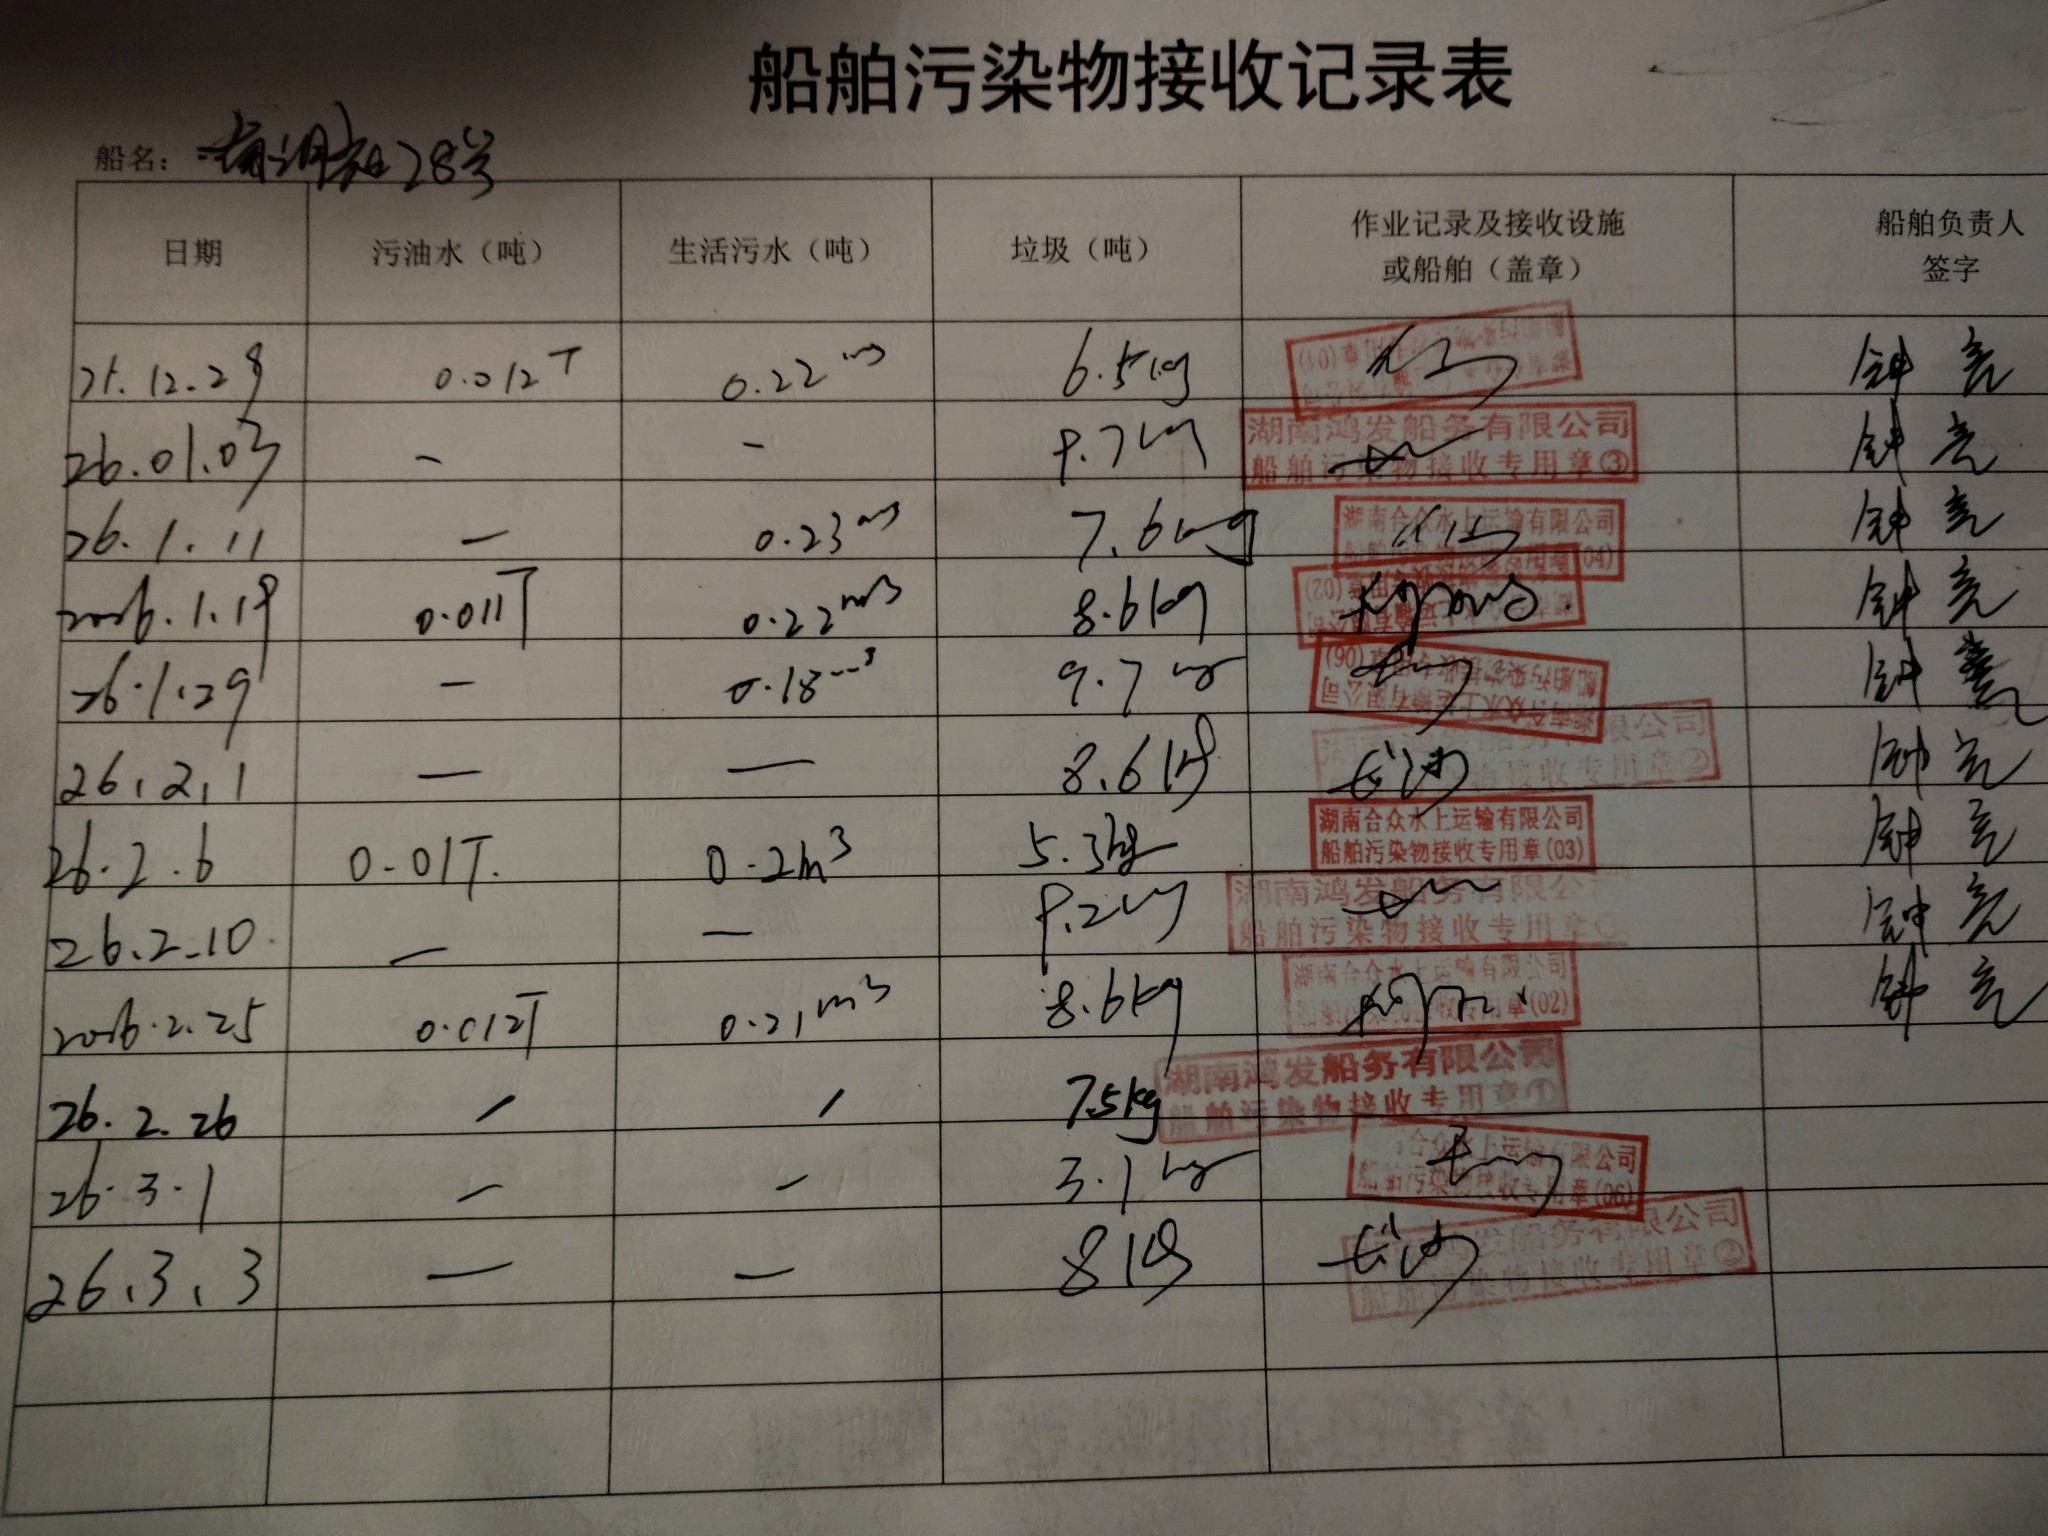 船舶污染物接收记录表
船名： 28号
日期 污油水（吨） 生活污水（吨） 垃圾（吨） 作业记录及接收设施或船舶（盖章） 船舶负责人签字
25.12.29 0.012T 0.22m3 6.5kg 钟亮
26.01.03 - - 9.7kg 湖南鸿发船务有限公司 船舶污染物接收专用章③ 钟亮
26.1.11 - 0.23m3 7.6kg 湖南合众水上运输有限公司 (04) 钟亮
2026.1.19 0.011T 0.22m3 8.6kg (02) 钟亮
26.1.29 - 0.18m3 9.7kg 湖南合众水上运输有限公司 船舶污染物接收专用章(06) 钟亮
26.2.1 — — 8.6kg 长沙 限公司 物接收专用章② 钟亮
26.2.6 0.01T. 0.2m3 5.3kg 湖南合众水上运输有限公司 船舶污染物接收专用章(03) 钟亮
26.2.10. — — 9.2kg 湖南鸿发船务有限公 船舶污染物接收专用章 钟亮
2026.2.25 0.012T 0.21m3 8.6kg 湖南合众水上运输有限公司 (02) 钟亮
26.2.26 / / 7.5kg 湖南鸿发船务有限公司 船舶污染物接收专用章①
26.3.1 - - 3.1kg 合众水上运输有限公司 船舶污染物接收专用章(06)
26.3.3 — — 8kg 长沙 鸿发船务有限公司 船舶污染物接收专用章②